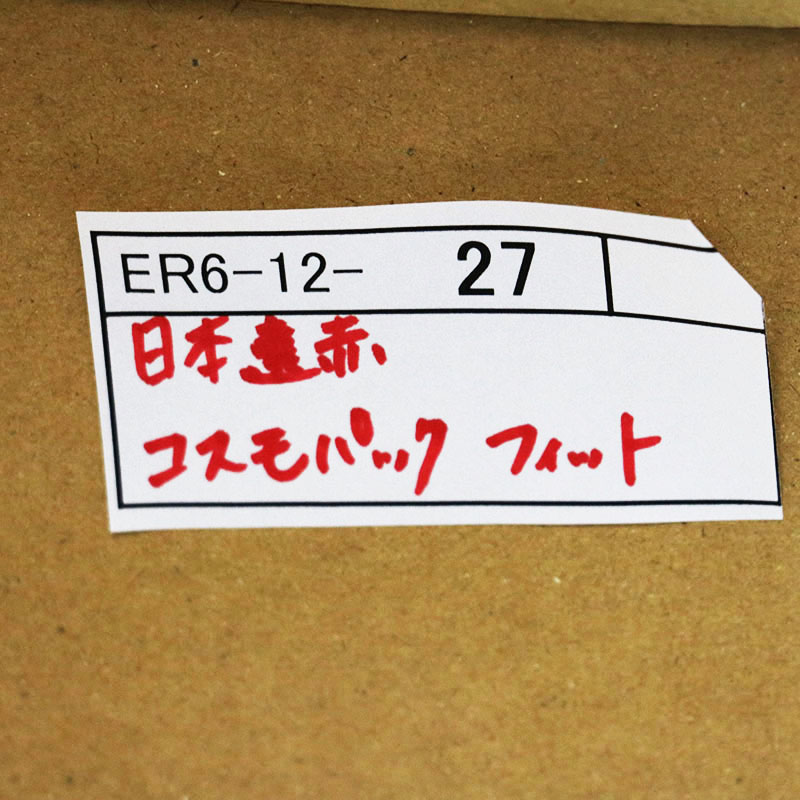 ER6-12- 27
日本遠赤
コスモパック フィット